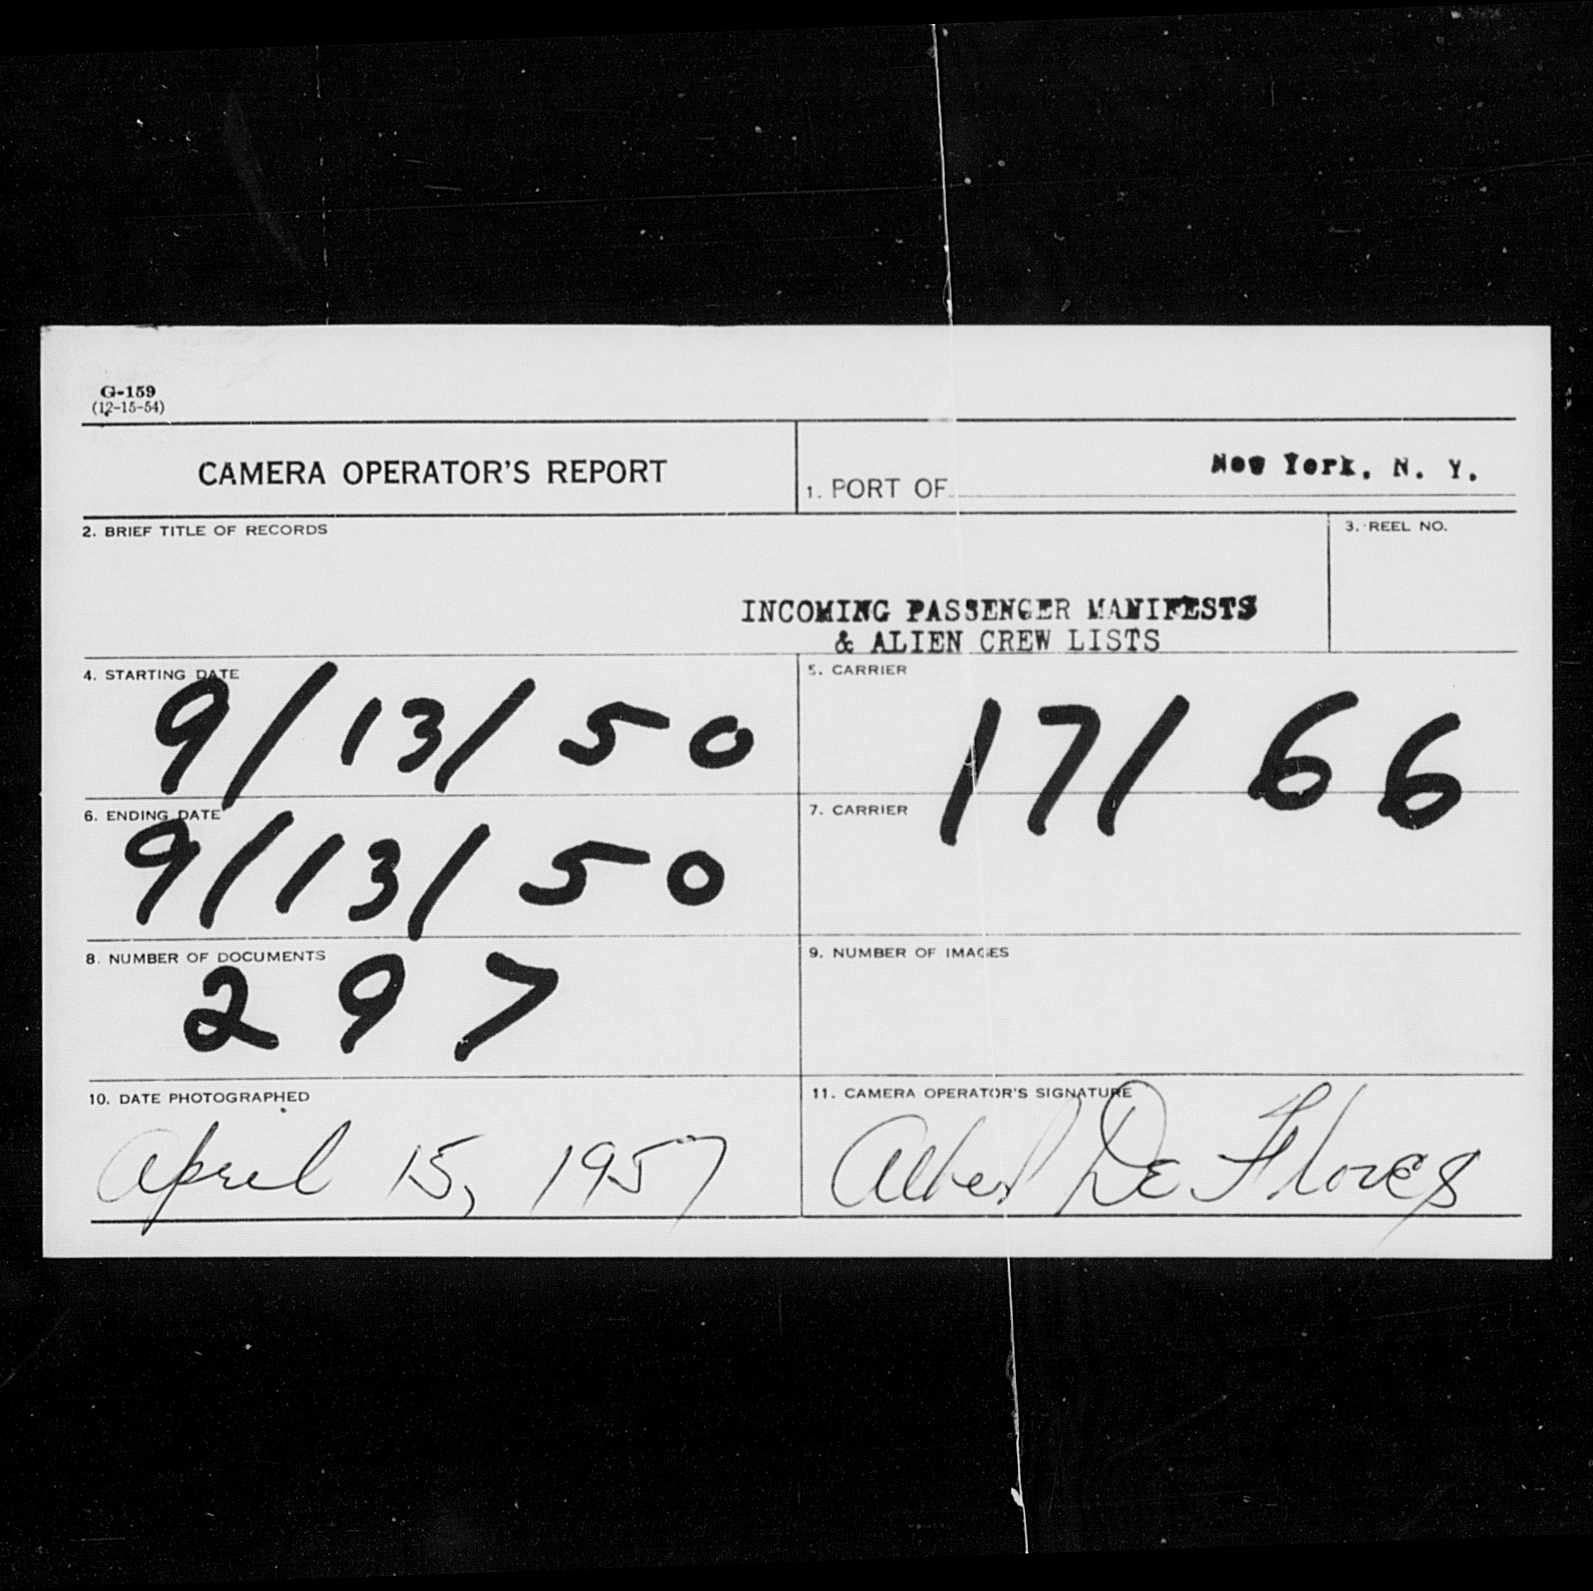 G-159
(12-15-54)
CAMERA OPERATOR'S REPORT
1. PORT OF New York, N. Y.
2. BRIEF TITLE OF RECORDS
3. REEL NO.
INCOMING PASSENGER MANIFESTS
& ALIEN CREW LISTS
4. STARTING DATE
9/13/50
5. CARRIER
17166
6. ENDING DATE
9/13/50
7. CARRIER
8. NUMBER OF DOCUMENTS
297
9. NUMBER OF IMAGES
10. DATE PHOTOGRAPHED
April 15, 1957
11. CAMERA OPERATOR'S SIGNATURE
Albert De Flores